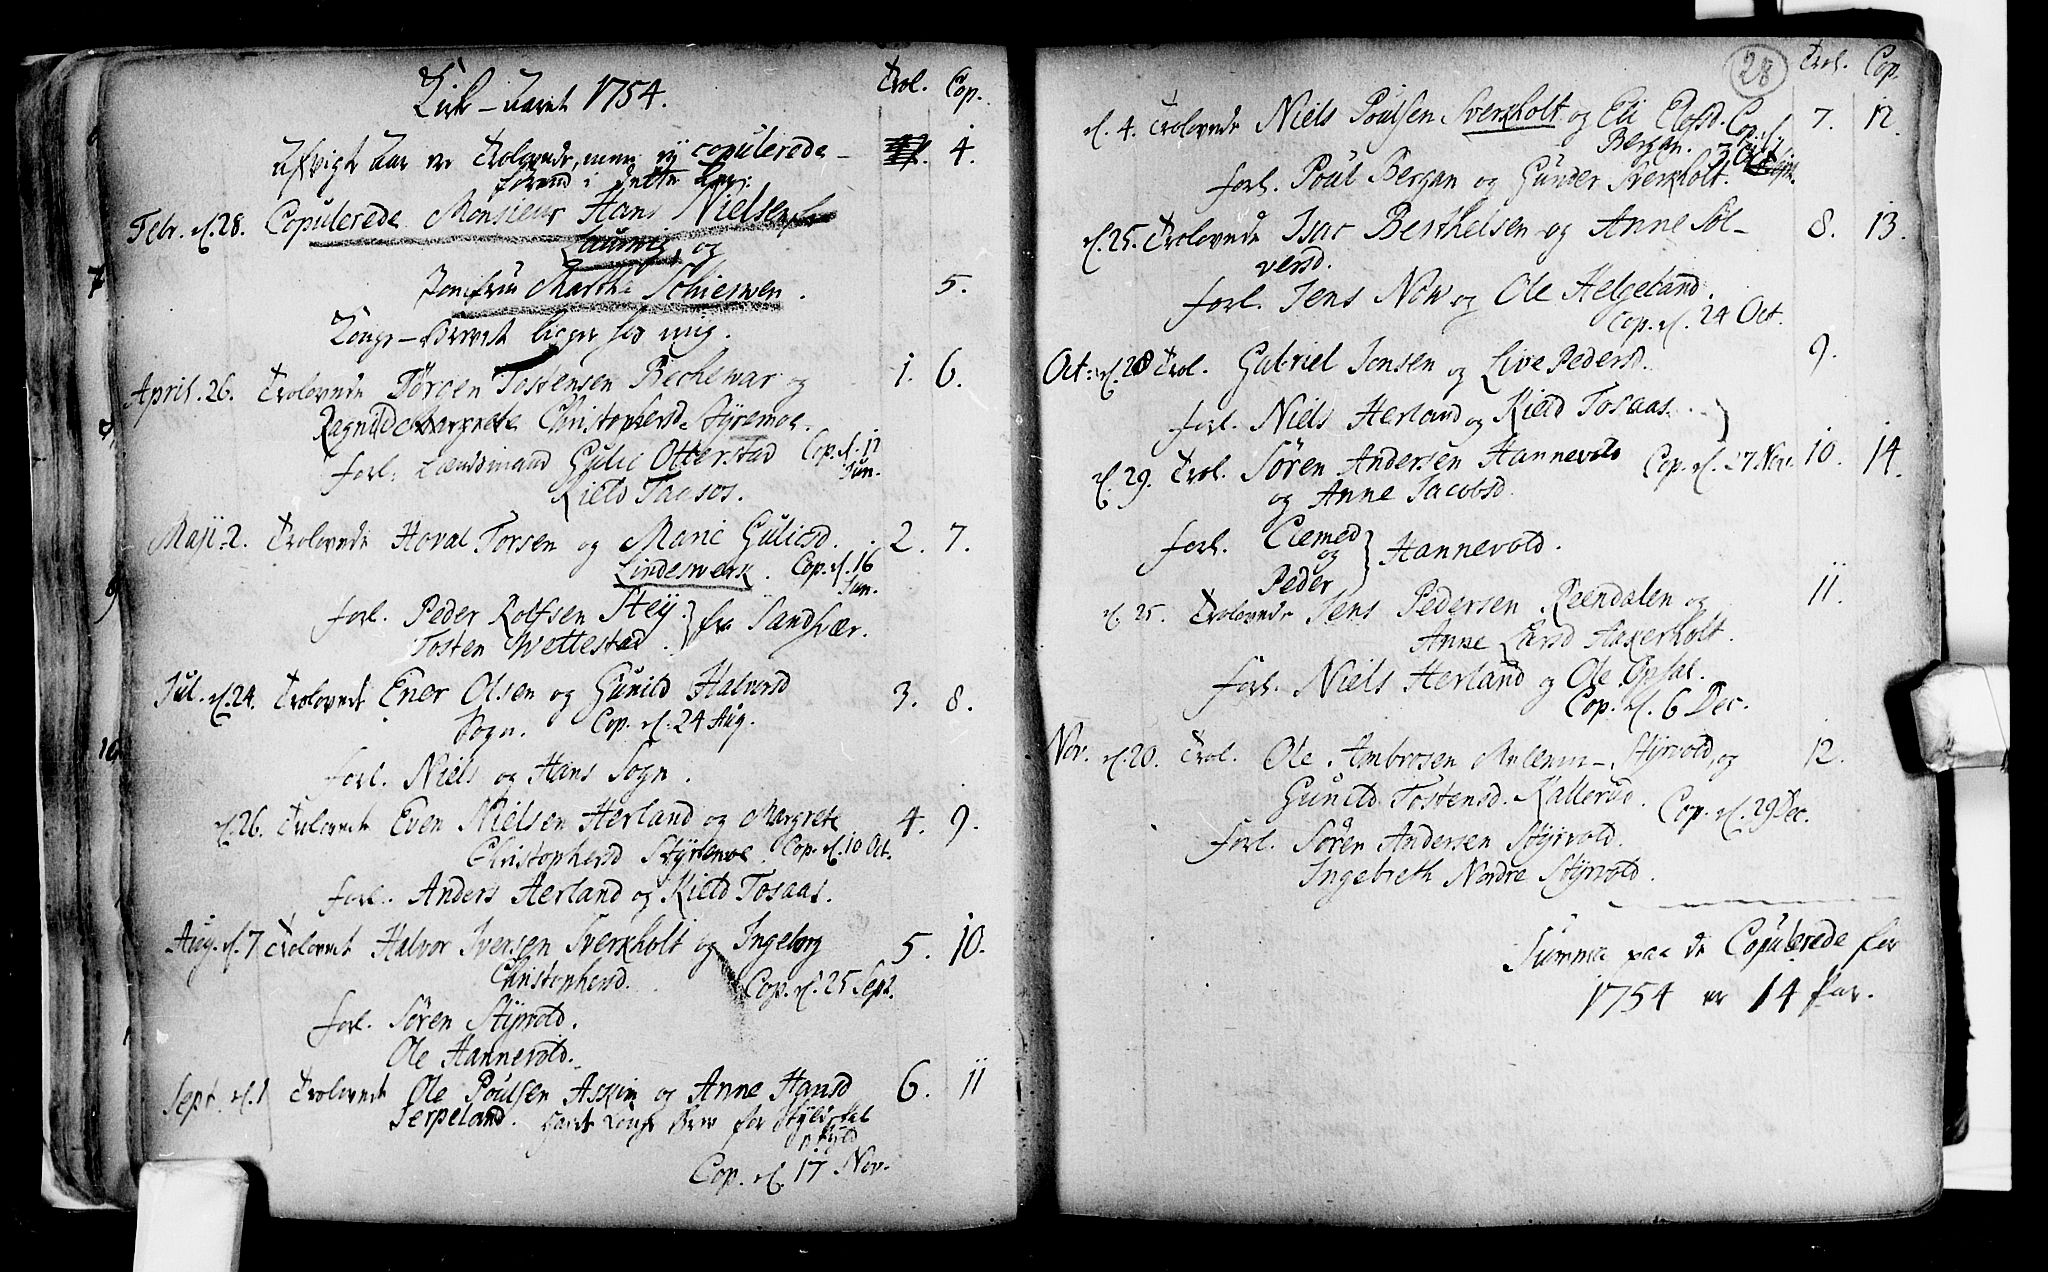 Kirk-Aaret 1754.
Trol. Cop.
Afvigte Aar er Trolovede, men ej copulerede 4.
forend i dette Aar:
Febr. d. 28. Copulerede Monsieur Hans Nielsen
og
Jomfru Marthe 5.
Konge-Brevet ligger hos mig.
April. 26. Trolovede Jørgen Tostensen Bechewar og 1. 6.
Ragnild Margrete Christophersd. Styremoe.
forl. Lændsmand Gulic Otterstad Cop. d. 17
Kield Tausos. Jun.
Maji 2. Trolovede Hoval Torsen og Marie Gulicsd. 2. 7.
Lindeswerk. Cop. d. 16
Jun.
forl. Peder Rolfsen Stey fra Sandsvær.
Tosten Wettestad.
Jul. d. 24. Trolovede Ener Olsen og Gunild Halvorsd 3. 8.
Sogn. Cop. d. 24 Aug.
forl. Niels og Hans Sogn.
d. 26. Trolovede Even Nielsen Herland og Margrete 4. 9.
Christophersd Styremoe. Cop. d. 10 Oct.
forl. Anders Herland og Kield Tosaas.
Aug. d. 7 Trolovede Halvor Iversen Sverkholt og Ingeborg 5. 10.
Christophersd. Cop. d. 25 Sept.
forl. Søren Styrvold.
Ole Hannevold.
Sept. d. 1 Trolovede Ole Poulsen Askim og Anne Hansd 6. 11
Serpeland. havde Konge Brev for
Cop. d. 17 Nov.
28
Trol. Cop.
d. 4. Trolovede Niels Poulsen Sverkholt og Eli Elofsd. 7. 12.
Bergan. Cop. d.
forl. Poul Bergan og Gunder Sverkholt.
d. 25. Trolovede Isac Berthelsen og Anne Søl- 8. 13.
versd.
forl. Jens Now og Ole Helgeland.
Cop. d. 24 Oct.
Oct. d. 28 Trol. Gabriel Jonsen og Live Pedersd. 9.
forl. Niels Herland og Kield Tosaas.
d. 29. Trol. Søren Andersen Hannevold Cop. d. 27 Nov. 10. 14.
og Anne Jacobsd.
forl. Clemed
og Hannevold.
Peder
d. 25. Trolovede Jens Pedersen Reendalen og 11.
Anne Larsd Haxerholt.
forl. Niels Herland og Ole Opsal.
Cop. d. 6 Dec.
Nov. d. 20. Trol. Ole Ambrosen Mellem-Styrvold, og 12.
Gunild Tostensd. Kallerud. Cop. d. 29 Dec.
forl. Søren Andersen Styrvold.
Ingebreth Nordre Styrvold.
Summa paa de Copulerede for
1754 er 14 Par.